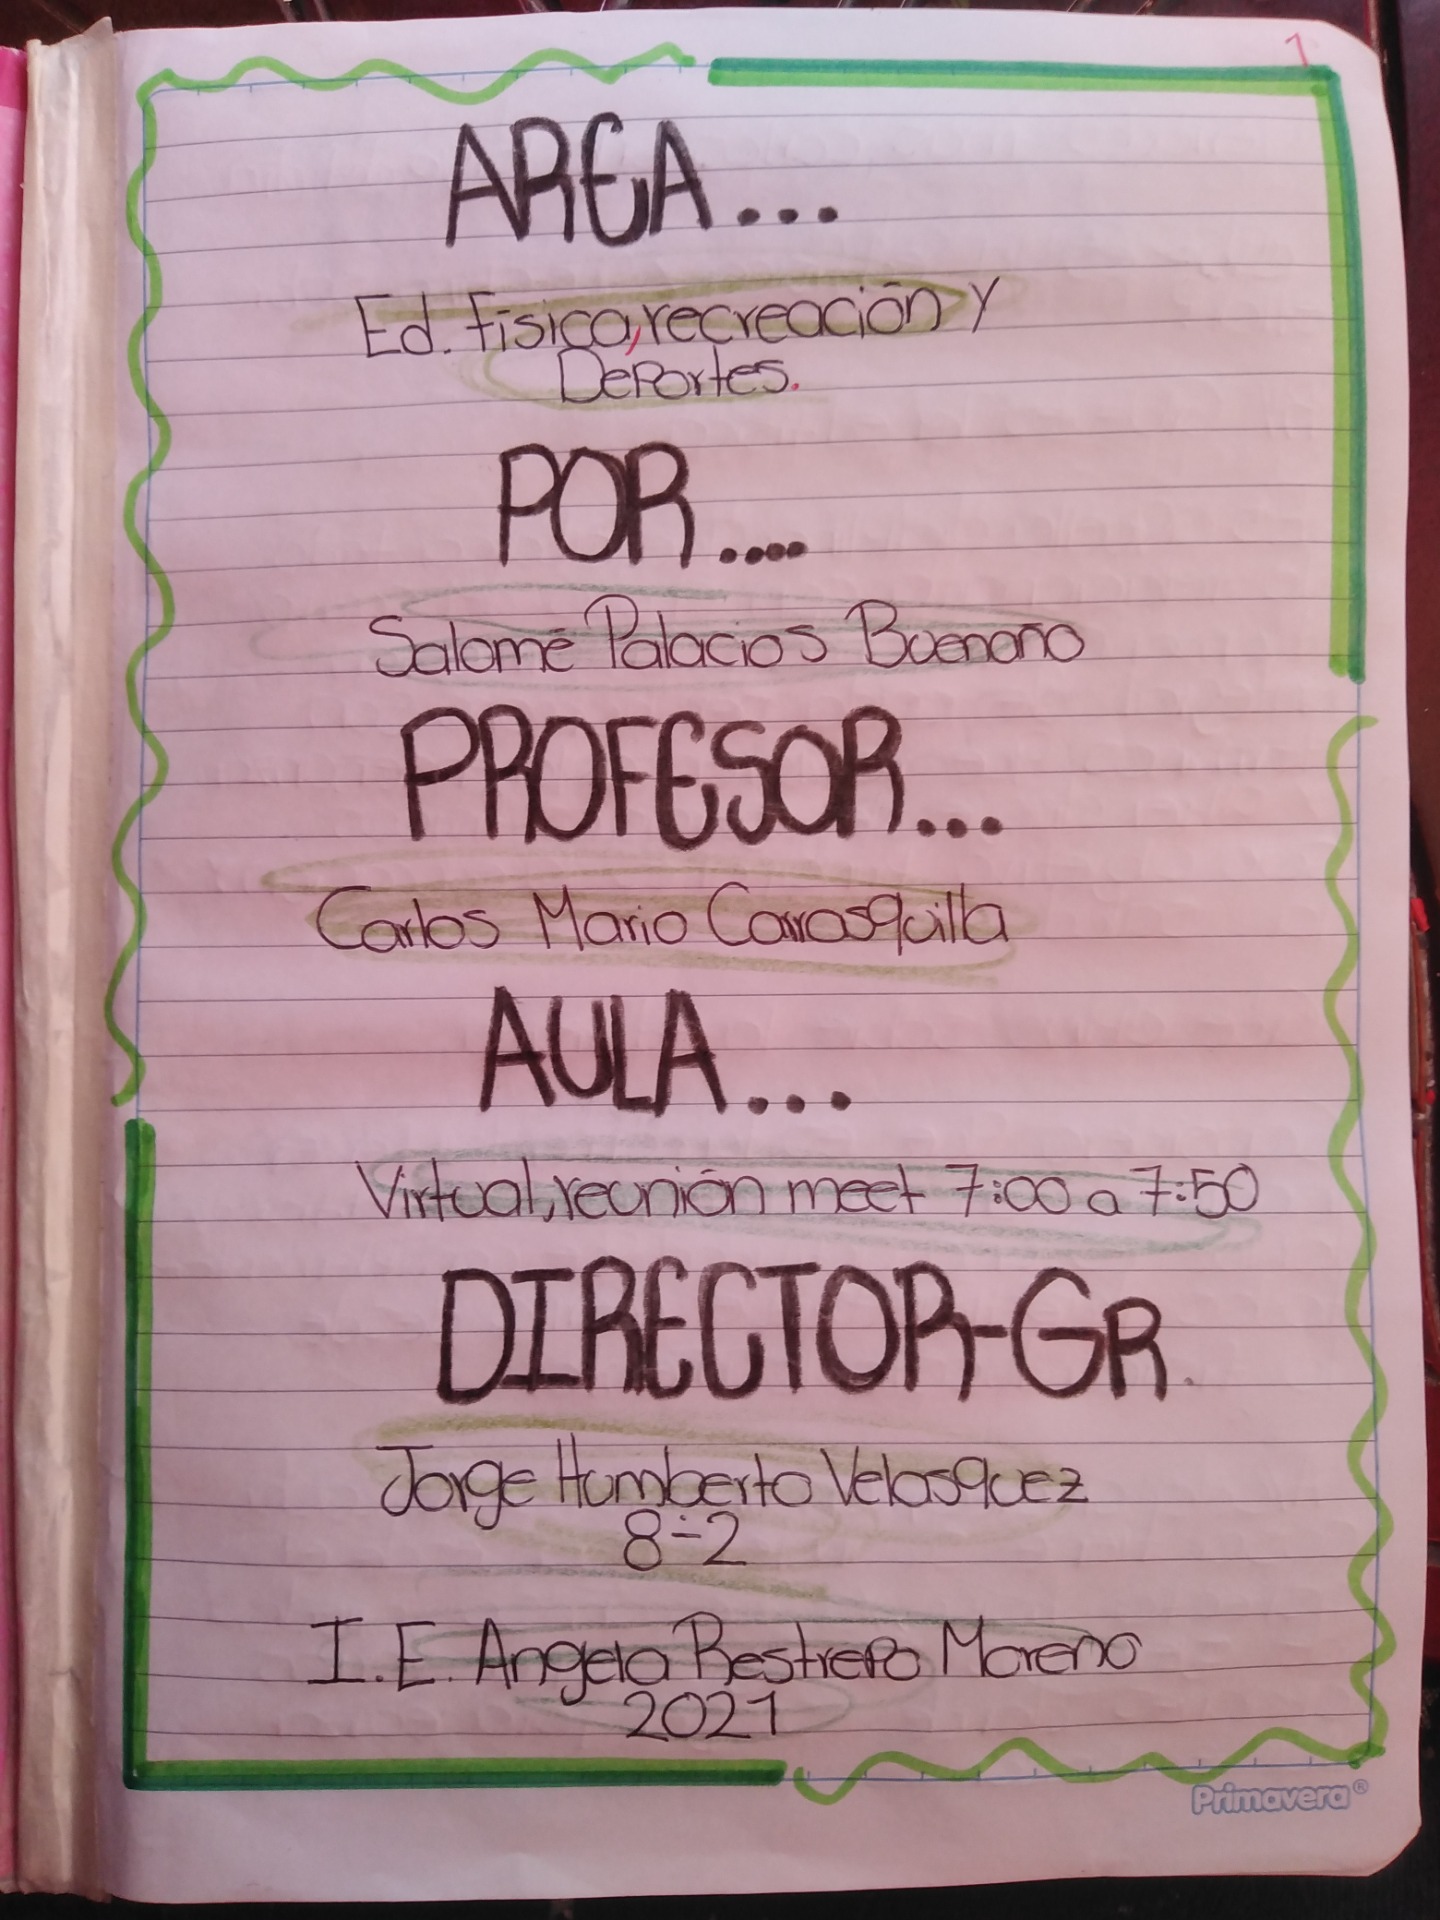 1
AREA...
Ed. física, recreación y
Deportes.
POR....
Salomé Palacios Buenaño
PROFESOR...
Carlos Mario Carrasquilla
AULA...
Virtual, reunión meet 7:00 a 7:50
DIRECTOR-Gr.
Jorge Humberto Velasquez
8-2
I.E. Angela Restrepo Moreno
2021
Primavera®